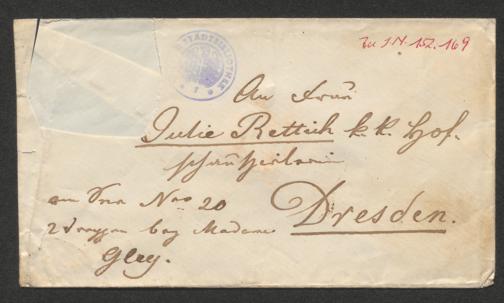 STADTBIBLIOTHEK
Zu I.N. 152.169
An Frau
Julie Rettich k.k. Hof-
schauspielerin
Nro 20
Dresden.
2 Treppen bey Madame
Gley.